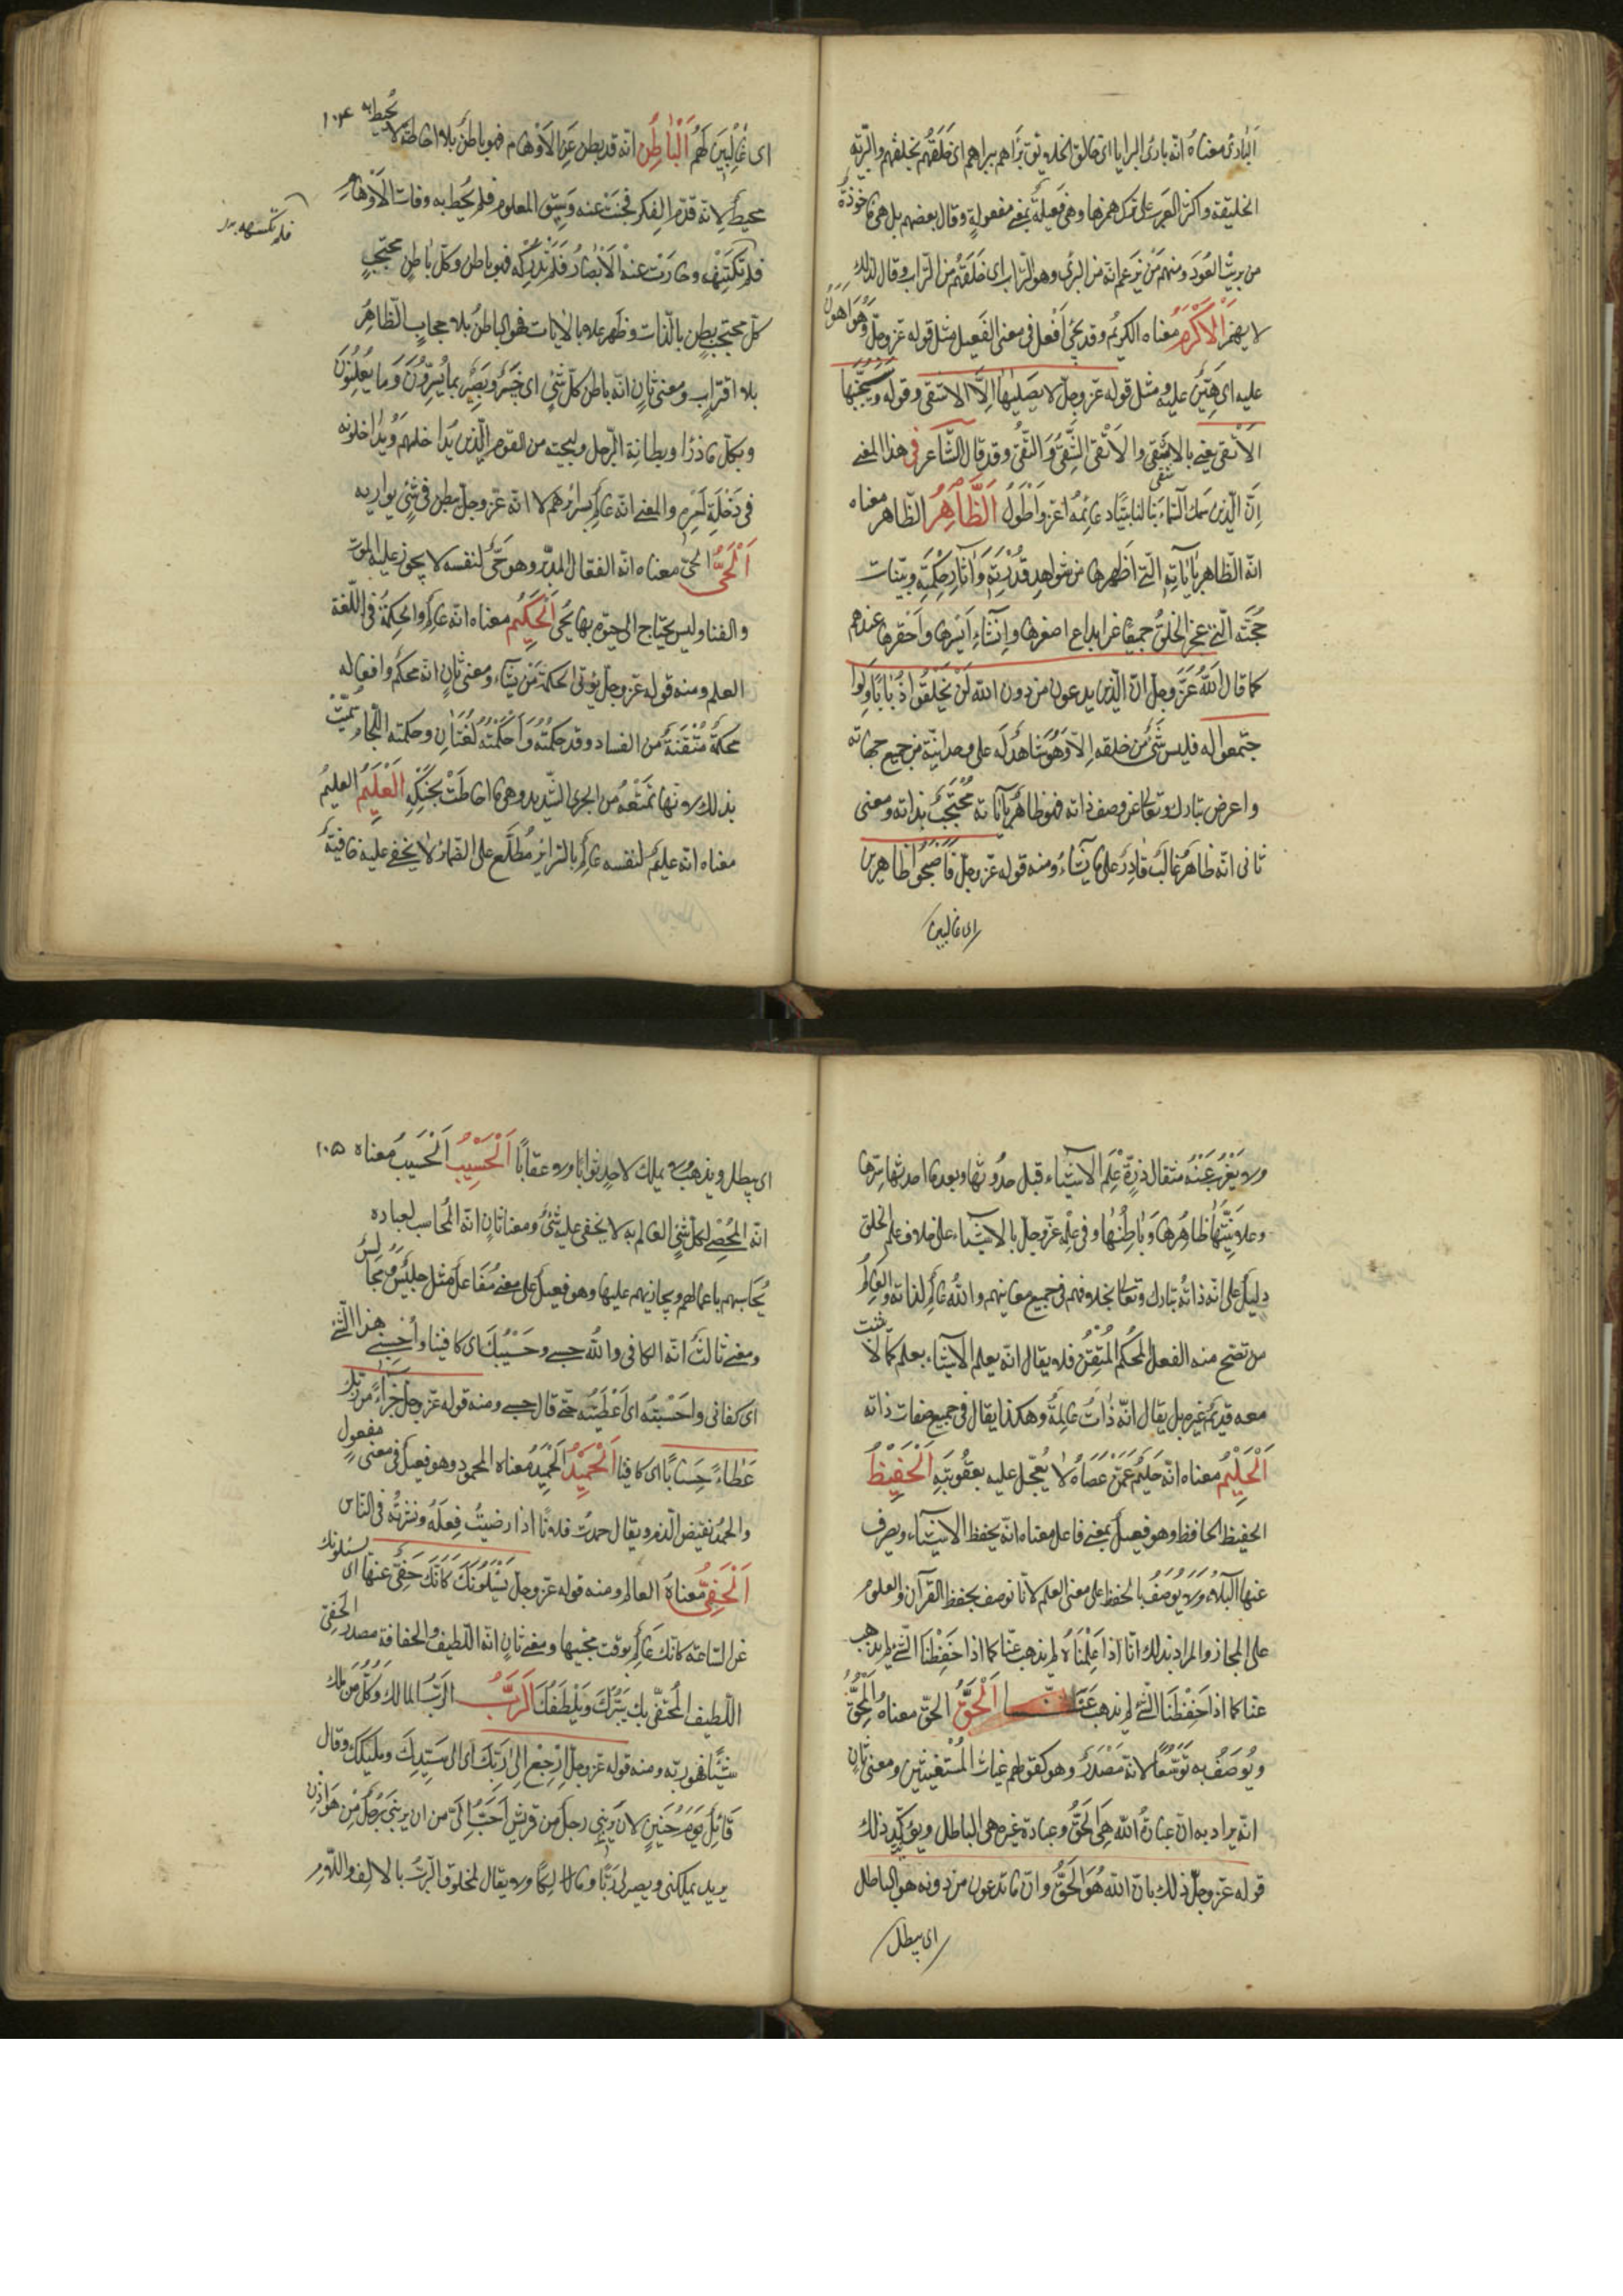 اَلْبارِئُ معناهُ انّه بارئ البرايا ای خالق الخلايق بَرَاهم يبراهم ای خَلَقَهُم يخلقهم والبريّه
الخليقة واكثر العرب على ترك همزها وهی فَعيلةٌ بمعنى مفعولةٍ وقال بعضهم بل هی ماخوذةٌ
من بريتُ العُودَ ومنهم مَنْ يَزعم انّه من البرى وهو التراب ای خَلَقَهُم من التراب وقال لذلك
لا يهمز اَلْاَكْرَمُ معناه الكريمُ وقد يجئ اَفْعل فى معنى الفَعيل مثل قوله عزّ وجلّ وَهُوَ اَهْوَنُ
عليه ای هَيّنٌ عليه ومثل قوله عزّ وجلّ لا يَصْليٰهٰا اِلَّا الاشقى وقوله وَسَيُجَنَّبُهَا
الاَتْقى يعنى بالاشقى والاَتْقى الشَّقِىُّ وَالتَّقِىُّ وقد قال الشّاعر فى هذا المعنى
اِنّ الّذى سمك السّماءَ بنا لنا بيتًا دعائِمُهُ اعزّ واَطْوَلُ اَلظّٰاهِرُ الظّاهر معناه
انّه الظّاهر بآياتِهِ الّتى اَظْهرها من شواهد قُدْرَتِهِ وَآثارِ حِكْمَتِهِ وبيّنات
حُجَّتِه الّتى عجز الخلقُ جميعًا عن ابداع اصغرها وانشاءِ ايسرها واَحقرها عندهم
كما قال اللهُ عَزَّ وجلّ انّ الّذين يدعون من دون الله لَنْ يَخْلُقُوا ذُبٰابًا وَلَوِا
جتمعوا له فليس شَئٌ من خلقه الّا وَهُوَ شٰاهدٌ له على وحدانيّته من جميع جهاته
واعرض تبارك وتعالى عن وصف ذاته فهو ظاهرٌ بآياته مُحْتَجَبٌ بذاته ومعنى
ثانى انّه ظاهرٌ غالبٌ قٰادِرٌ على ما يشاءُ ومنه قوله عزّ وجلّ فَاَصْبَحُوا ظاهرين
ای غالبين
١٠٤
ای غٰالِبينَ لَهُمْ اَلْبٰاطِنُ انّه قد بطن عَنِ الاَوْهام فهو باطنٌ بلا احاطةٍ لا يُحيط به
محيطٌ لِانّه قدّم الفِكر فخبت عنه وَسَبَق المعلوم فلم يُحط به وفات الاَوْهامِ
فلم تكتنهه
فلم تَكْتَنِهْهُ وحارَتْ عنهُ الْاَبْصٰارُ فَلَمْ تُدْرِكْه فهو باطن كلّ باطنٍ محتجبٍ
كلّ محتجبٍ بطن بالذّات وظهر علا بالايات فهو الباطنُ بلا حجابٍ الظّاهِرُ
بلا اقترابٍ ومعنى ثانٍ انّه باطن كلّ شئٍ ای خبيرٌ وبصيرٌ بما يُسِرّوُنَ وَما يُعْلِنُونَ
وبكلّ ما ذرأ وبطانة الرّجل وليجته من القوم الّذين يُداخلهم وَيُداخلونه
فى دَخْلَةِ اَمْرِهِ والمعنى انّه عالمٌ بسرائرهم لا انّه عزّ وجلّ يبطن فى شئٍ يواريه
اَلْحَىُّ الحىّ معناه انّه الفعّال المدبّر وهو حىٌّ لنفسه لا يجوز عليه الموت
والفنا وليس يحتاج الى حيوةٍ بها يُحيى اَلْحَكيمُ معناه انّه عالمٌ والحِكمةُ فى اللّغة
العلم ومنه قوله عزّ وجلّ يؤتى الحكمةَ مَنْ يشاء ومعنى ثانٍ انّه محكمٌ وافعاله
محكمةٌ مُتْقَنَةٌ من الفساد وقد حكمتُه وَاَحْكَمْتُهُ لُغَتٰانِ وحكمته اللّجام سُمّيت
بذلك لانّها تَمْنَعُهُ من الجرى الشّديد وهى ما احاطَتْ بِحَنَكِهِ اَلْعَليمُ العليمُ
معناه انّه عليمٌ لنفسه عالمٌ بالسّرائر مُطّلَعٌ على الضّمائر لا يخفى عليه خافيةٌ
ولا يَعْزُبُ عَنْهُ مثقال ذرّةٍ عَلِمَ الاشيٰاء قبل حدُوثها وبعد ما احدثها سِرّها
وعلانِيَتهٰا ظاهرُها وَبٰاطِنُهٰا وفى عِلْمِهِ عزّ وجلّ بالاشيٰاء على خلاف علم الخلق
دليلٌ على انّه ذاتهُ تبارك وتعالى بخلافهم فى جميع معانيهم واللهُ عالمٌ لذاته والعَالِمُ
من تصحّ منه الفعل المُحْكَم المُتْقَن فلا يقال انّه يعلم الاشيٰاء بعلم كما لا يثبت
معه قديمٌ غيره بل يقال انّه ذاتٌ عالِمَةٌ وهكذا يقال فى جميع صفات ذاته
اَلْحَليْمُ معناه انّه حَليمٌ عَمَّنْ عَصٰاهُ لا يُعَجّل عليه بعقُوبَتِهِ اَلْحَفيظُ
الحفيظ الحافظ وهو فعيلٌ بمعنى فاعل معناه انّه يحفظ الاشيٰاء ويصرف
عنها البَلاءُ ولا يُوصَفُ بالحفظ على معنى العلم لانّا نوصف بحفظ القرآن والعلوم
على المجاز والمراد بذلك انّا اذا عَلِمْنٰاهُ لم يذهب عنّا كما اذا حَفِظْنَا الشّئَ لم يذهب
عنّا كما اذا حَفِظْنَا الشّئَ لم يذهب عَنَّا اَلْحَقُّ الحقّ معناهُ المُحِقُّ
ويُوصَفُ به تَوَسُّعًا لانّه مَصْدَرٌ وهو كقولهم غياث المُسْتَغيثين ومعنى ثانٍ
انّه يراد به انّ عبادةَ اللهِ هِىَ الحَقُّ وعبادة غيره هى الباطل ويؤيّد ذلك
قوله عزّ وجلّ ذلك بانّ الله هُوَ الحَقُّ وانّ ما يدعون من دونه هو الباطل
ای يبطل
١٠٥
ای يبطل ويذهب ولا يملك لاحدٍ ثوابًا ولا عقابًا اَلْحَسيْبُ اَلْحَسيبُ معناه
انّه المُحْصى لكلّ شئٍ العالم به لا يخفى عليه شئٌ ومعنا ثانٍ انّه المُحاسب لعباده
يُحاسبهم باعمالهم ويجازيهم عليها وهو فعيلٌ على معنى مُفَاعلٍ مثل جليسٌ ومجالسٌ
ومعنى ثالثٌ انّه الكافى والله حسبى وحَسْيبُكَ ای كافينا واَحْسبنى هذا الشّئ
ای كفانى واَحْسَبْتُه ای اَعْطَيْتُه حتّى قال حسبى ومنه قوله عزّ وجلّ جزاءً من ربّك
عَطٰاءً حِسٰابًا ای كافيًا اَلْحَميْدُ اَلْحَميْدُ معناه المحمود وهو فعيلٌ فى معنى مفعولٍ
والحمدُ نقيض الذّم ويقال حمدتُ فلانًا اذا رضيتُ فِعلَهُ ونشرتُه فى النّاس
اَلْحَفِىُّ معناهُ العالم ومنه قوله عزّ وجلّ يَسْئَلُونَكَ كَاَنَّكَ حَفِىٌّ عنها ای يسئلونك
عن السّاعة كانّك عالمٌ بوقت مجيئها ومعنى ثانٍ انّه اللّطيف والحفاةة مصدر الحَفِىّ
اللّطيف المُحْتَفى بِك يَبَرُّكَ وَيَلْطفُك اَلرَّبُّ الرّبّ المالك وكُلُّ مَنْ ملك
شيئًا فهو ربّه ومنه قوله عزّ وجلّ اِرْجِعْ اِلىٰ رَبِّكَ ای الى سَيّدِكَ ومليكك وقال
قٰائِلٌ يَوْمَ حُنَيْنٍ لانْ يَرُبَّنى رجلٌ من قريشٍ اَحَبُّ اِلَىَّ من ان يربّنى رجُلٌ مِنْ هَوٰازِنَ
يريد يملكنى ويصير لى رَبًّا ومالكًا ولا يقال لمخلوق الرّبُّ بالالف واللّام